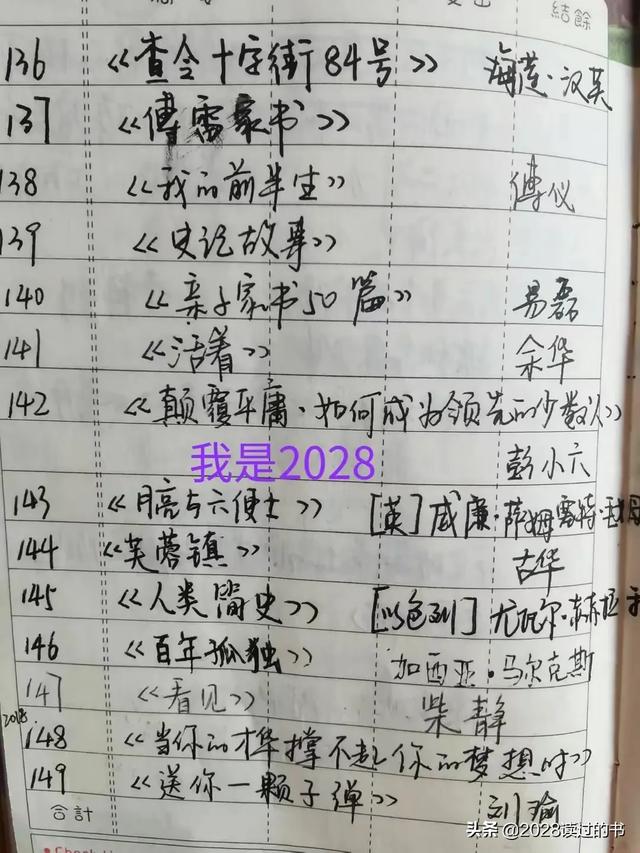 結餘
136 《查令十字街84号》 海莲·汉芙
137 《傅雷家书》
138 《我的前半生》 傅仪
139 《史记故事》
140 《亲子家书50篇》 易磊
141 《活着》 余华
142 《颠覆平庸·如何成为领先的少数人》
我是2028
彭小六
143 《月亮与六便士》 [英]威廉·萨姆塞特·
144 《芙蓉镇》 古华
145 《人类简史》 [以色列]尤瓦尔·赫拉利
146 《百年孤独》 加西亚·马尔克斯
147 《看见》 柴静
2018
148 《当你的才华撑不起你的梦想时》
149 《送你一颗子弹》 刘瑜
合計
头条 @2028读过的书